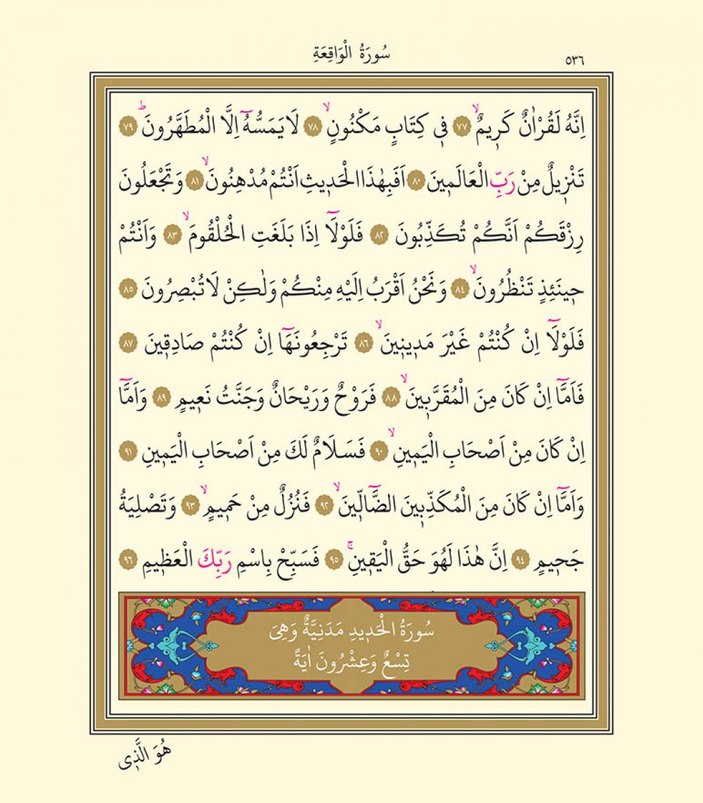 سُورَةُ الْوَاقِعَةِ
٥٣٦
اِنَّهُ لَقُرْاٰنٌ كَر۪يمٌۙ ٧٧ ف۪ي كِتَابٍ مَكْنُونٍۙ ٧٨ لَا يَمَسُّهُٓ اِلَّا الْمُطَهَّرُونَۜ ٧٩
تَنْز۪يلٌ مِنْ رَبِّ الْعَالَم۪ينَ ٨٠ اَفَبِهٰذَا الْحَد۪يثِ اَنْتُمْ مُدْهِنُونَۙ ٨١ وَتَجْعَلُونَ
رِزْقَكُمْ اَنَّكُمْ تُكَذِّبُونَ ٨٢ فَلَوْلَٓا اِذَا بَلَغَتِ الْحُلْقُومَۙ ٨٣ وَاَنْتُمْ
ح۪ينَئِذٍ تَنْظُرُونَۙ ٨٤ وَنَحْنُ اَقْرَبُ اِلَيْهِ مِنْكُمْ وَلٰكِنْ لَا تُبْصِرُونَ ٨٥
فَلَوْلَٓا اِنْ كُنْتُمْ غَيْرَ مَد۪ين۪ينَۙ ٨٦ تَرْجِعُونَهَٓا اِنْ كُنْتُمْ صَادِق۪ينَ ٨٧
فَاَمَّٓا اِنْ كَانَ مِنَ الْمُقَرَّب۪ينَۙ ٨٨ فَرَوْحٌ وَرَيْحَانٌ وَجَنَّتُ نَع۪يمٍ ٨٩ وَاَمَّٓا
اِنْ كَانَ مِنْ اَصْحَابِ الْيَم۪ينِۙ ٩٠ فَسَلَامٌ لَكَ مِنْ اَصْحَابِ الْيَم۪ينِ ٩١
وَاَمَّٓا اِنْ كَانَ مِنَ الْمُكَذِّب۪ينَ الضَّٓالّ۪ينَۙ ٩٢ فَنُزُلٌ مِنْ حَم۪يمٍۙ ٩٣ وَتَصْلِيَةُ
جَح۪يمٍ ٩٤ اِنَّ هٰذَا لَهُوَ حَقُّ الْيَق۪ينِۚ ٩٥ فَسَبِّحْ بِاسْمِ رَبِّكَ الْعَظ۪يمِ ٩٦
سُورَةُ الْحَد۪يدِ مَدَنِيَّةٌ وَهِيَ
تِسْعٌ وَعِشْرُونَ اٰيَةً
هُوَ الَّذ۪ي